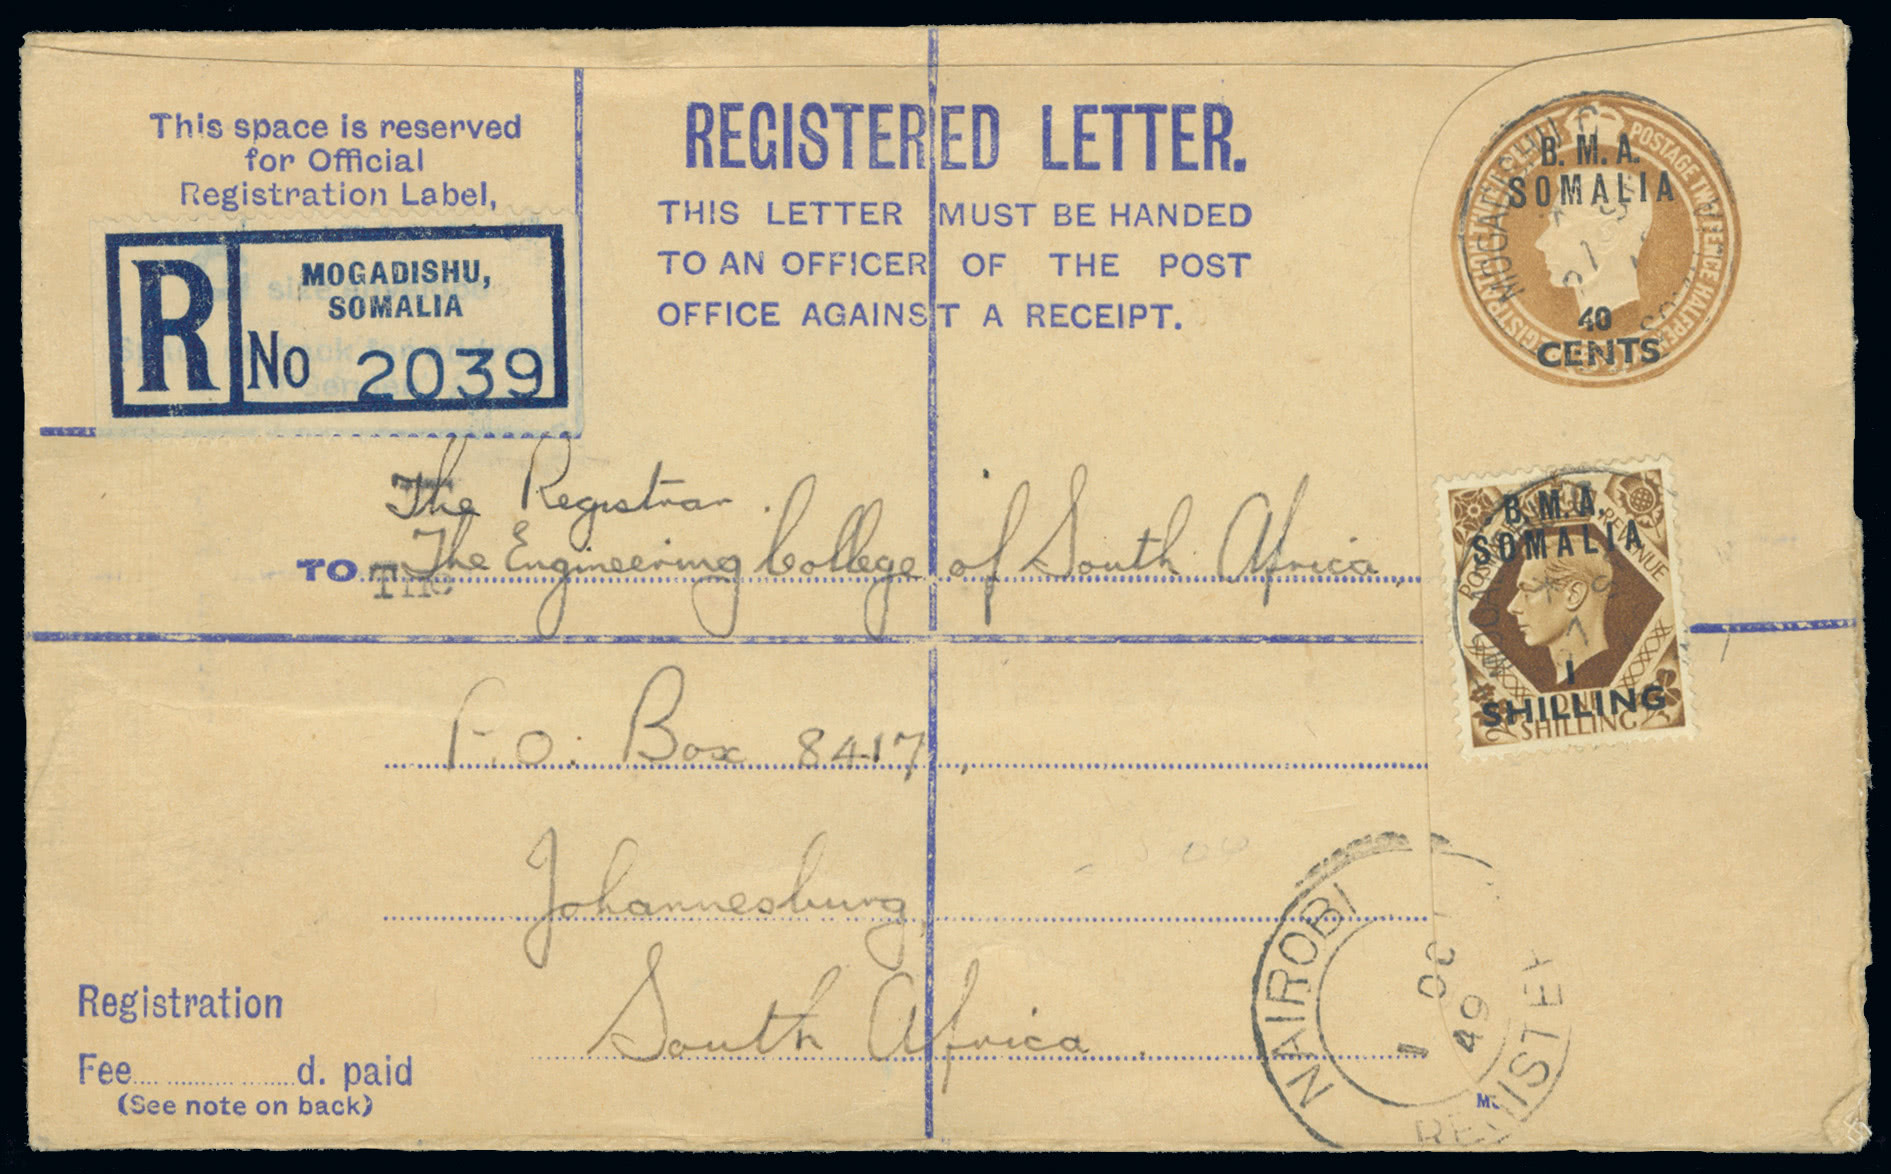 This space is reserved
for Official
Registration Label,
R
MOGADISHU,
SOMALIA
No 2039
REGISTERED LETTER.
THIS LETTER MUST BE HANDED
TO AN OFFICER OF THE POST
OFFICE AGAINST A RECEIPT.
B. M. A.
SOMALIA
POSTAGE TWOPENCE HALFPENNY
40
CENTS
MOGADISHU
The Registrar.
TO The Engineering College of South Africa,
P.O. Box 8417,
Johannesburg,
South Africa.
B. M. A.
SOMALIA
POSTAGE REVENUE
1
SHILLING
SHILLING
NAIROBI
1 OC
49
Registration
Fee d. paid
(See note on back)